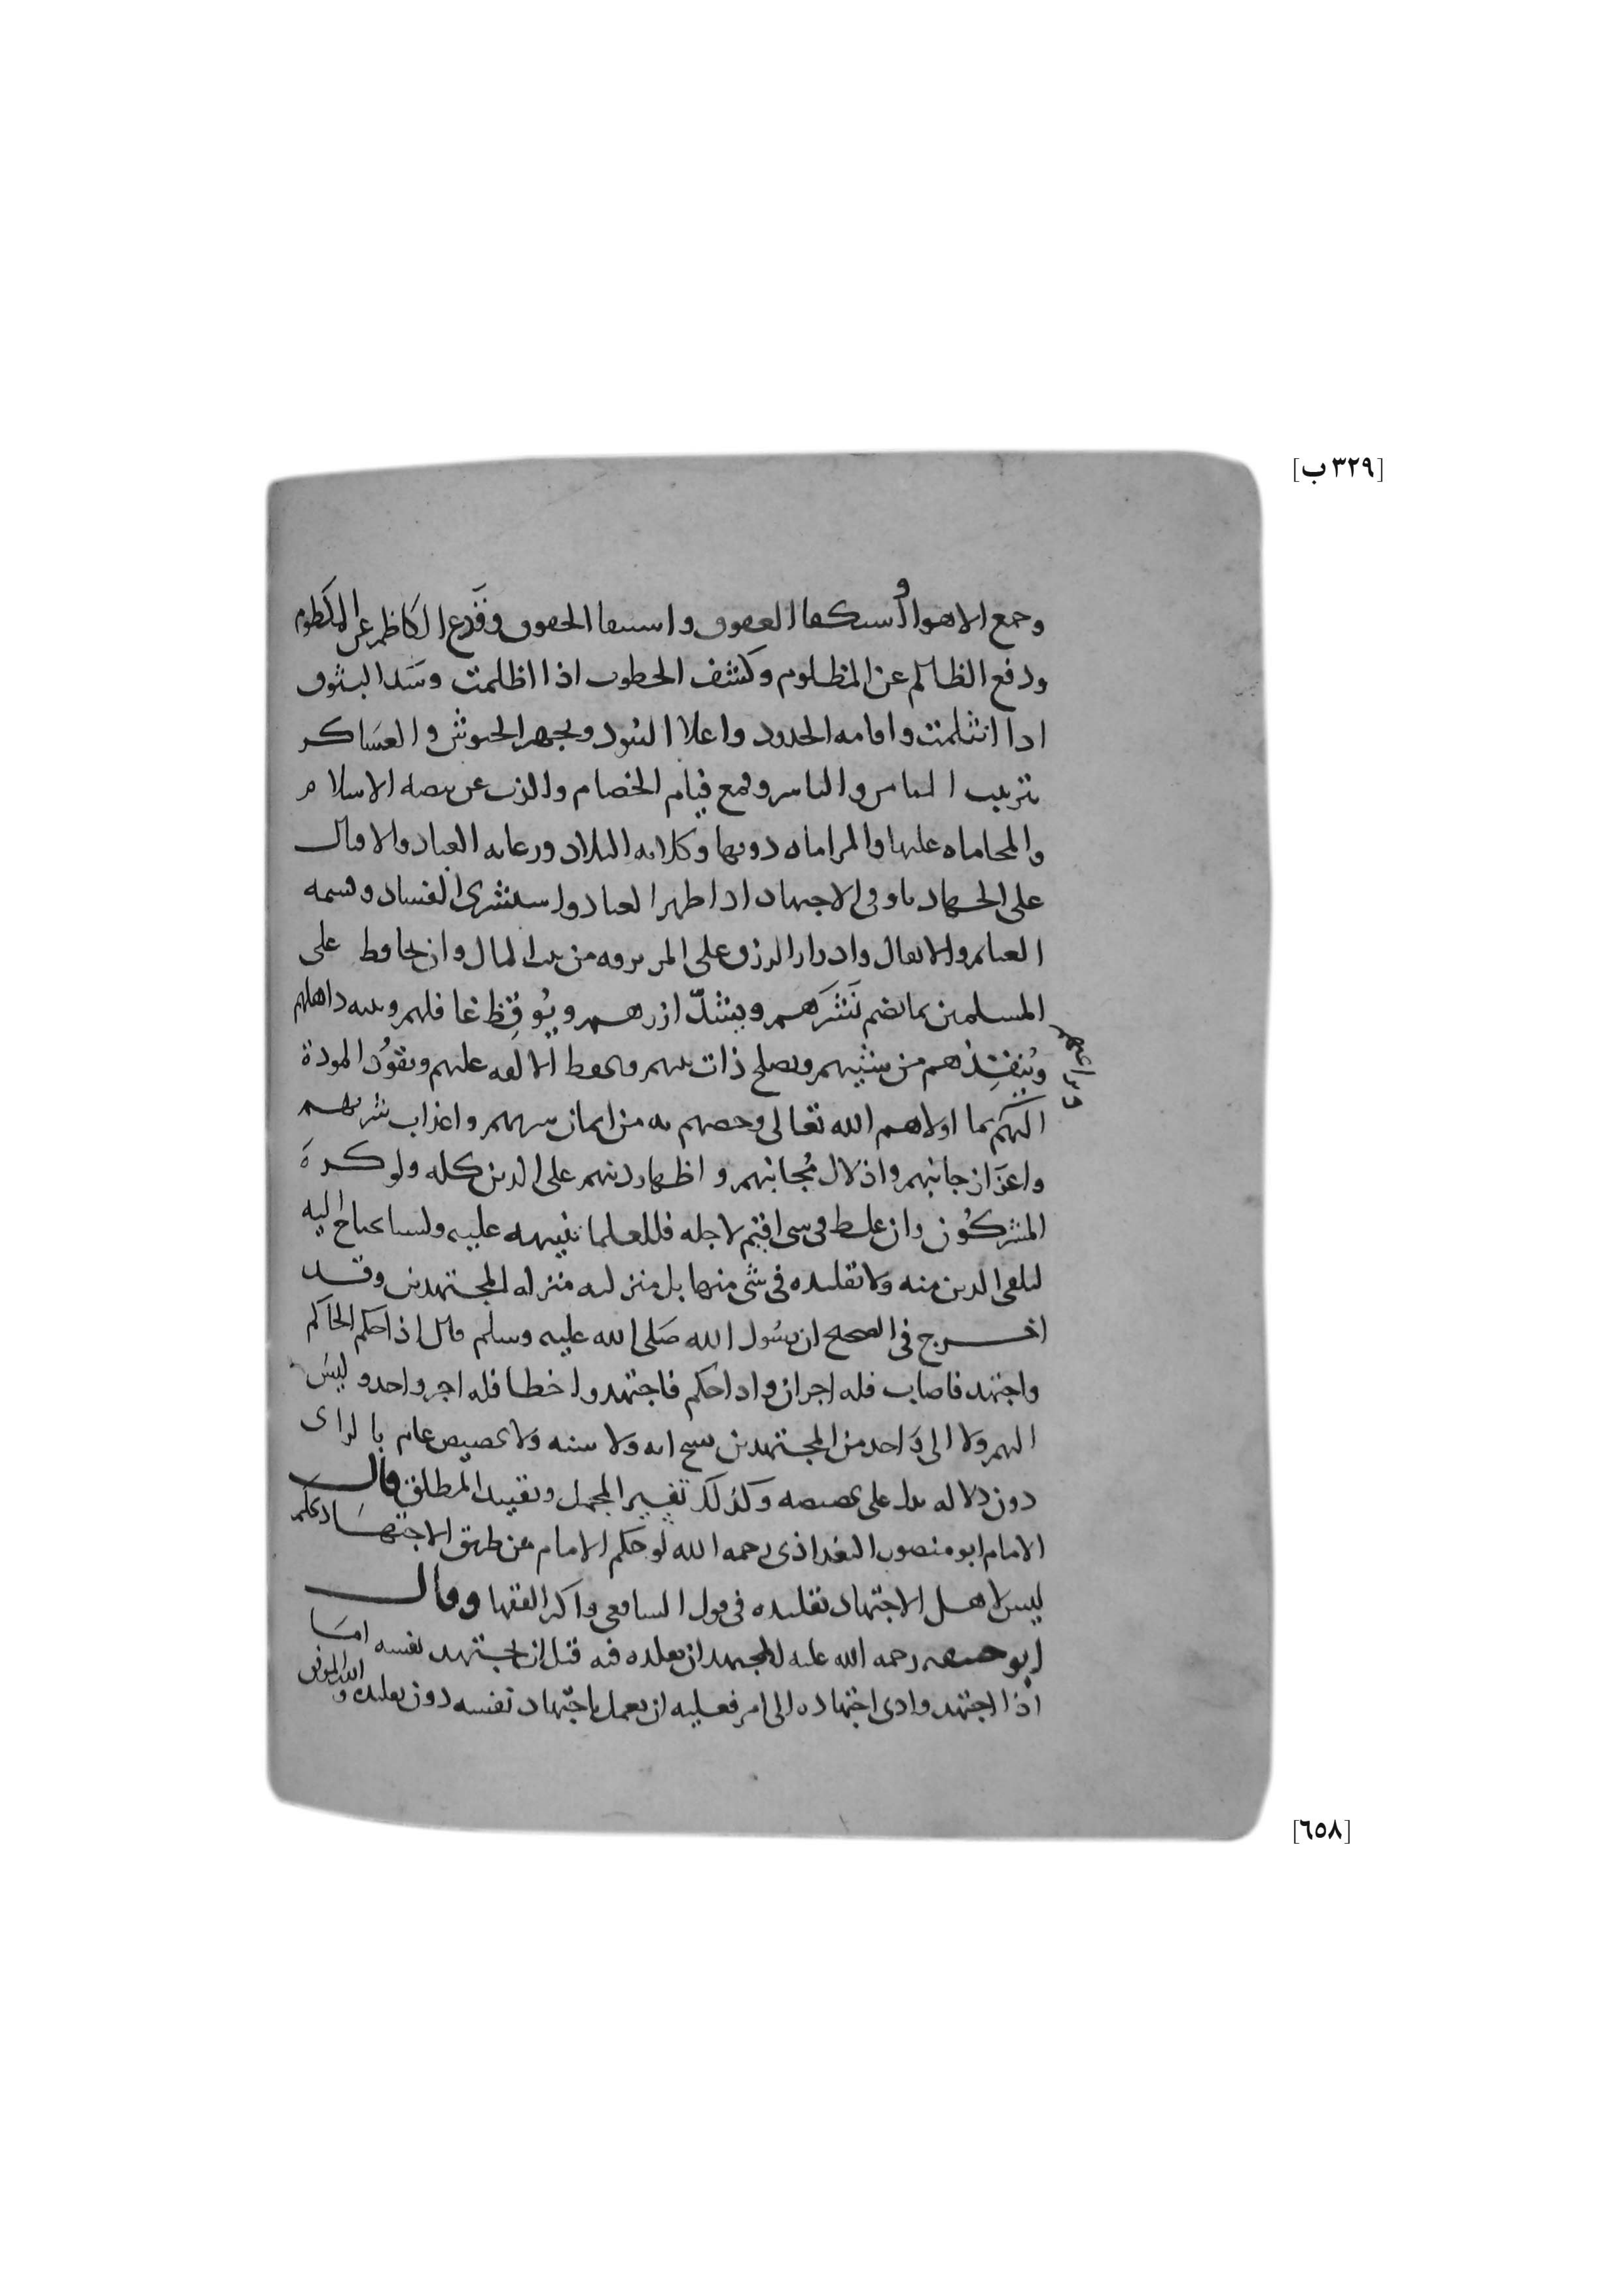 [٣٢٩ ب]
وجمع الاهوا واستكفا العقوق واستيفا الحقوق وقدع الكاظم عن المكظوم
ودفع الظالم عن المظلوم وكشف الخطوب اذا اظلمت وسد البثوق
اذا انثلمت واقامه الحدود واعلا البنود وتجهيز الجيوش والعساكر
بترتيب وقمع قيام الخصام والذب عن بيضه الاسلام
والمحاماه عليها والمراماه دونها وكلايه البلاد ورعايه العباد والاقبال
على الجهاد الاجتهاد اذا ظهر العناد واستشرى الفساد وقسمه
الغنايم والانفال وادرار الرزق على المرتزقه من بيت المال وان يحافظ على
المسلمين بما يضم نشرهم ويشد ازرهم ويوقظ غافلهم وينبه ذاهلهم
وينقذهم من ويصلح ذات بينهم ويحوط الالفه عليهم ويقود المودة
اليهم بما اولاهم الله تعالى وخصهم به من ايمان سربهم واعذاب شربهم
واعزاز جانبهم واذلال مجانبهم واظهار دينهم على الدين كله ولو كره
المشركون وان غلط في شي اقيم لاجله فللعلما تنبيهه عليه ولسنا نحتاج اليه
لتلقي الدين منه ولا تقليده في شي منها بل منزلته منزله المجتهدين وقد
اخرج في الصحيح ان رسول الله صلى الله عليه وسلم قال اذا حكم الحاكم
واجتهد فاصاب فله اجران واذا حكم فاجتهد واخطا فله اجر واحد وليس
اليهم ولا الى واحد من المجتهدين نسخ ايه ولا سنه ولا تخصيص عام بالراى
دون دلاله تدل على تخصيصه وكذلك تفسير المجمل وتقييد المطلق قال
الامام ابو منصور البغداذى رحمه الله لو حكم الامام من طريق الاجتهاد بحكم
ليس لاهل الاجتهاد تقليده في قول الشافعي واكثر الفقها وقال
ابو حنيفه رحمه الله عليه للمجتهد ان يقلده فيه قبل ان يجتهد بنفسه امـا
اذا اجتهد وادى اجتهاده الى امر فعليه ان يعمل باجتهاد نفسه دون تقليده والله الموفق
[٦٥٨]